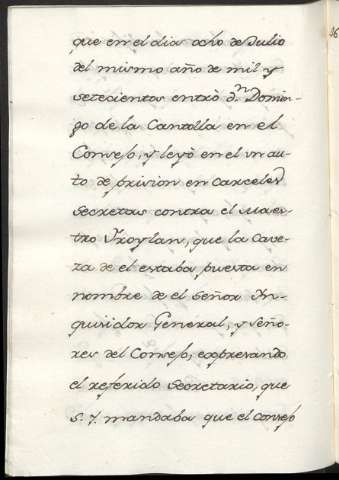 que en el dia ocho de Julio
del mismo año de mil y
setecientos entrò d.n Domin-
go de la Cantolla en el
Consejo, y leyò en el un au-
to de prision en carceles
secretas contra el Maes-
tro Froylan, que la Cave-
za de el estaba puesta en
nombre de el Señor In-
quisidor General, y Seño-
res del Consejo, expresando
el referido Secretario, que
S. Y. mandaba que el Consejo